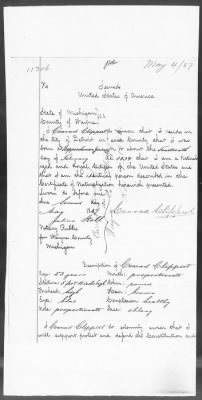 11706
May 4/87
To
United States of America.
State of Michigan } ss
County of Wayne
I Conrad Clippert swear that I reside in
the City of Detroit in said County that I was
born in
day of 1834 that I am a
and Loyal Citizen of the United States and
that I am the identical person described in the
Certificate of Naturalization herewith presented.
Sworn to before me
this day of
May 1887
Conrad Clippert
Notary Public
for Wayne County
Michigan
Description of Conrad Clippert
Age: 53 years
Mouth: proportionate
Stature: 5 feet
Chin: round
Forehead: high
Hair: brown
Eyes: blue
Complexion: healthy
Nose: proportionate
Face: oblong
I Conrad Clippert do solemnly swear that I
will support protect and defend the Constitution and